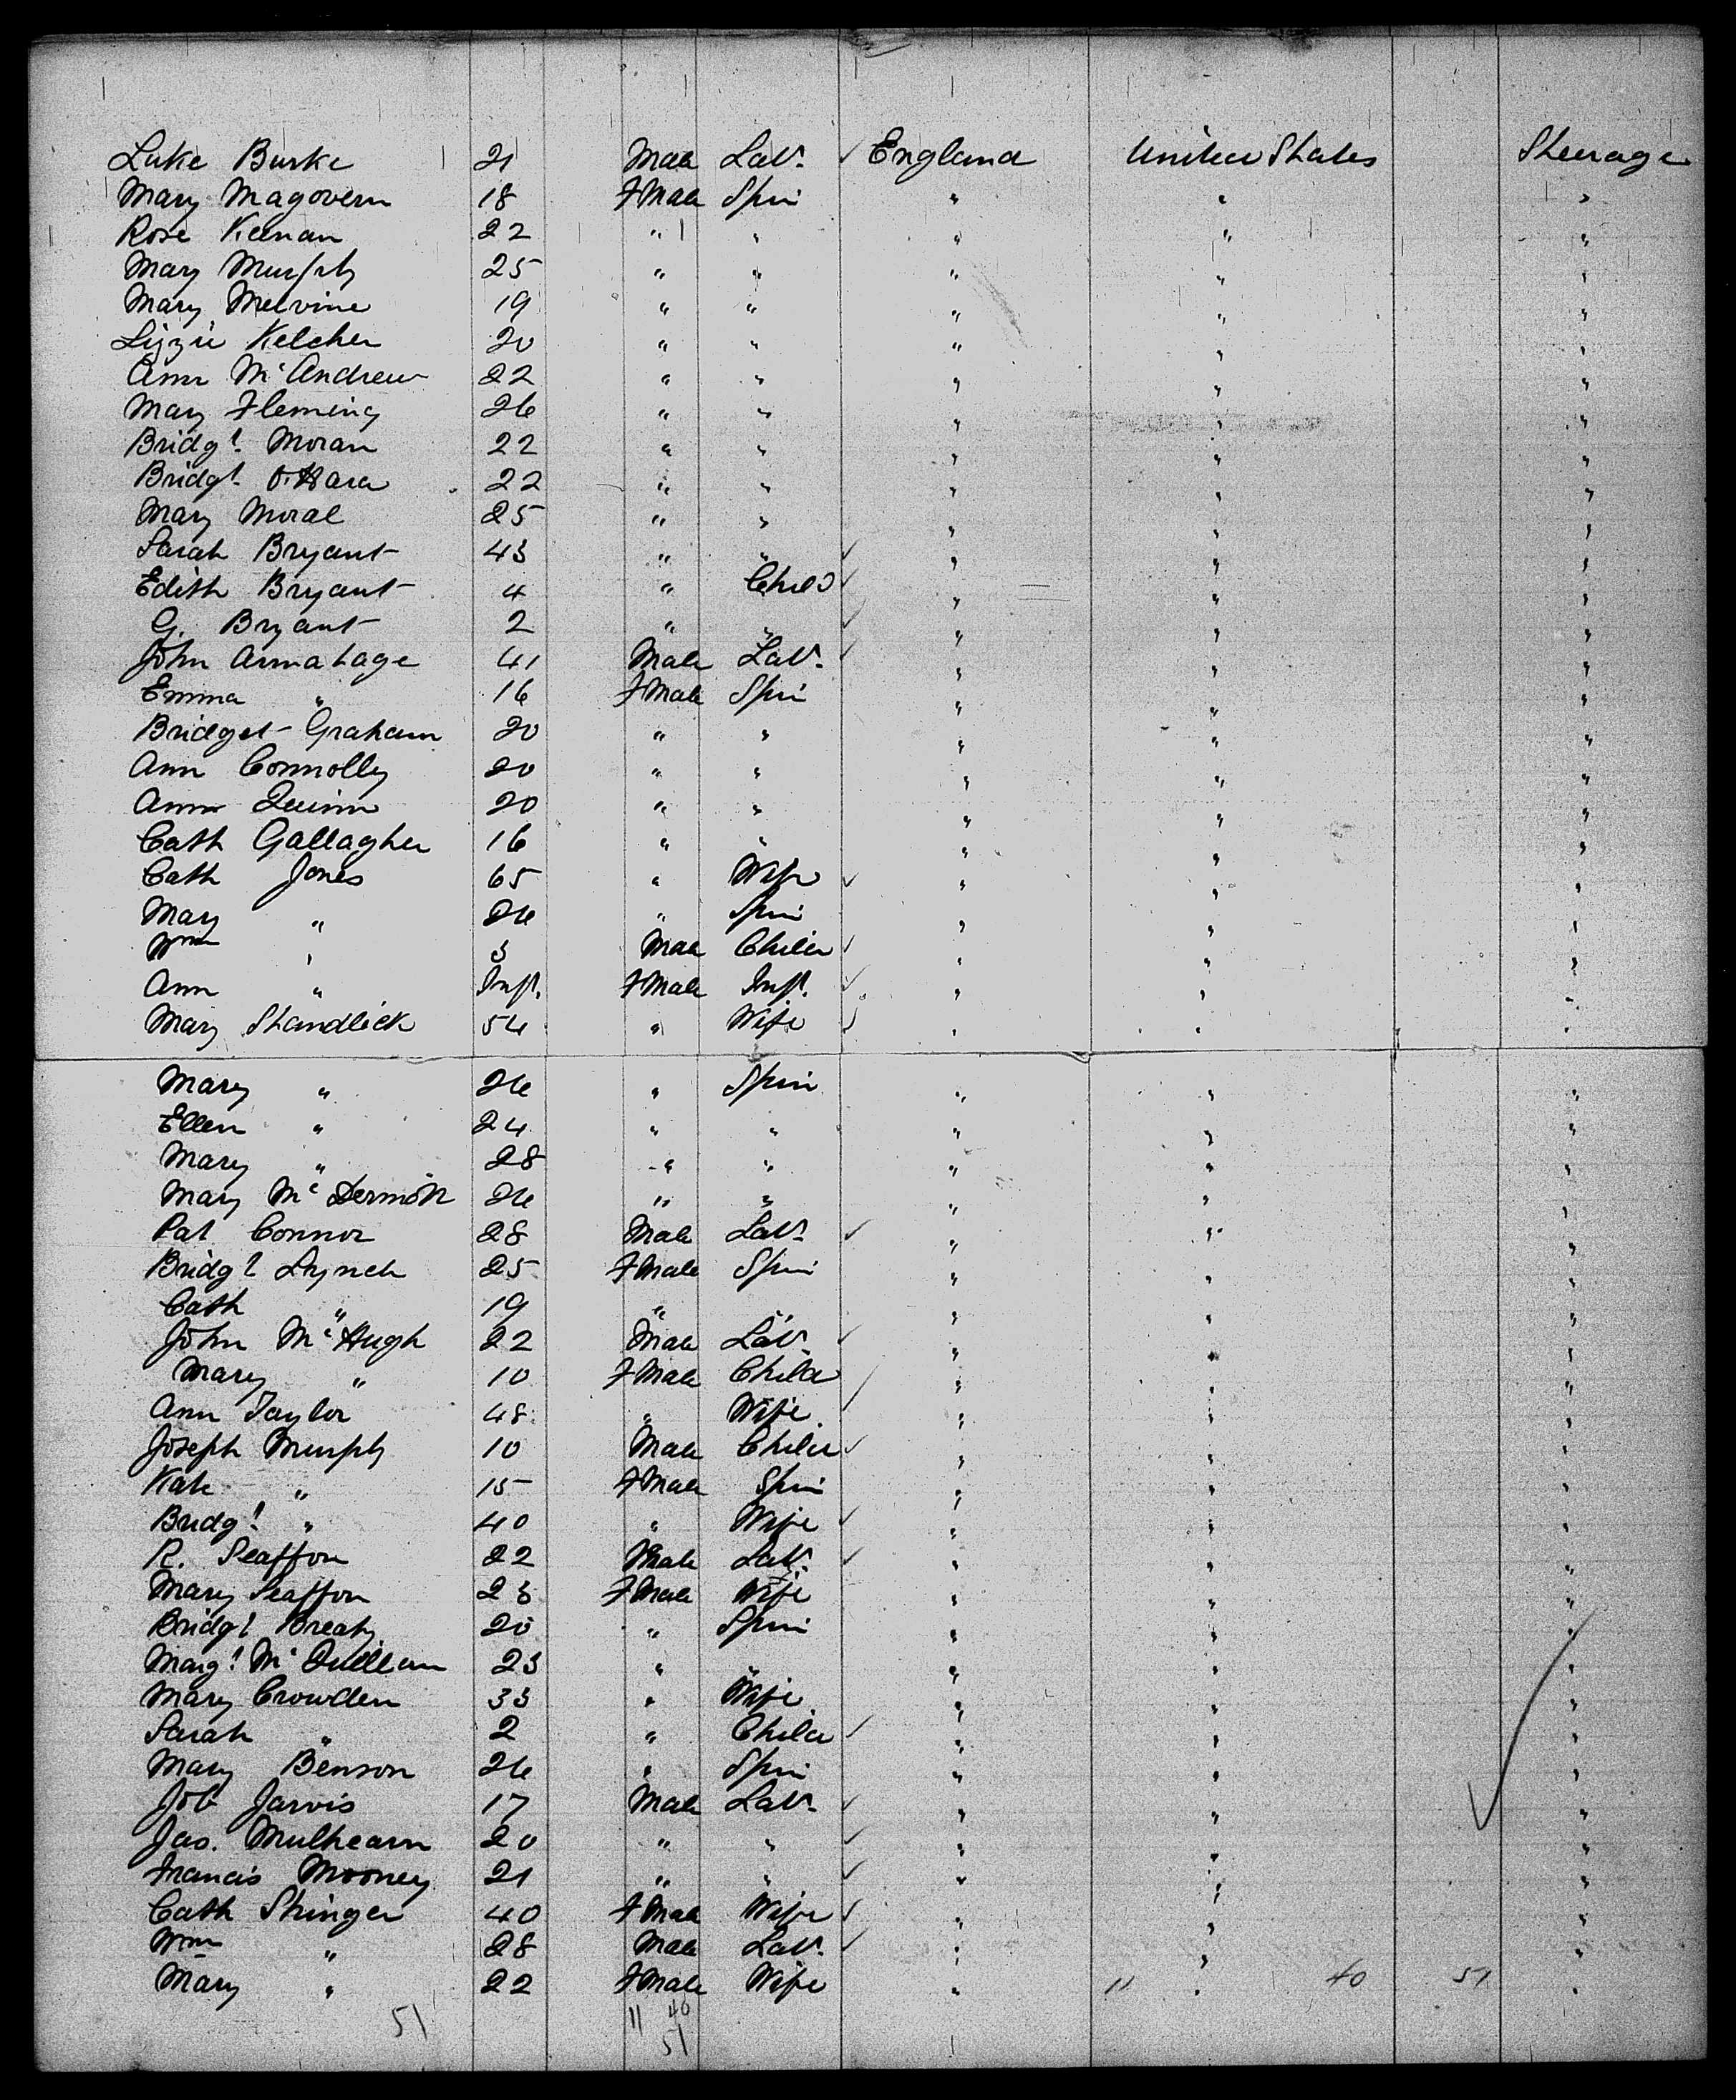 Luke Burke 21 Male Lab. England United States Steerage
Mary Magovern 18 FMale Spin " " "
Rose Keenan 22 " " " " "
Mary Murphy 25 " " " " "
Mary Melvine 19 " " " " "
Lizzie Kelcher 20 " " " " "
Ann McAndrew 22 " " " " "
Mary Fleming 26 " " " " "
Bridgt. Moran 22 " " " " "
Bridgt. O'Hara 22 " " " " "
Mary Moral 25 " " " " "
Sarah Bryant 43 " " " " "
Edith Bryant 4 " Child " " "
G. Bryant 2 " " " " "
John Armatage 41 Male Lab. " " "
Emma " 16 FMale Spin " " "
Bridget Graham 20 " " " " "
Ann Connolly 20 " " " " "
Ann Quinn 20 " " " " "
Cath Gallagher 16 " " " " "
Cath Jones 65 " Wife " " "
Mary " 26 " Spin " " "
Wm " 3 Male Child " " "
Ann " Inft. FMale Inft. " " "
Mary Standlick 54 " Wife " " "
Mary " 26 " Spin " " "
Ellen " 24 " " " " "
Mary " 28 " " " " "
Mary McDermott 26 " " " " "
Pat Connor 28 Male Lab. " " "
Bridgt Lynch 25 FMale Spin " " "
Cath " 19 " " " " "
John McHugh 22 Male Lab. " " "
Mary " 10 FMale Child " " "
Ann Taylor 48 " Wife " " "
Joseph Murphy 10 Male Child " " "
Kate " 15 FMale Spin " " "
Bridgt " 40 " Wife " " "
R. Seaffon 22 Male Lab. " " "
Mary Seaffon 23 FMale Wife " " "
Bridgt Breaty 20 " Spin " " "
Margt McQuillan 23 " " " " "
Mary Crowden 33 " Wife " " "
Sarah " 2 " Child " " "
Mary Benson 26 " Spin " " "
Job Jarvis 17 Male Lab. " " "
Jas. Mulhearn 20 " " " " "
Francis Mooney 21 " " " " "
Cath Stringer 40 FMale Wife " " "
Wm " 28 Male Lab. " " "
Mary " 22 FMale Wife " 11 " 40 51 "
51 11 40
51